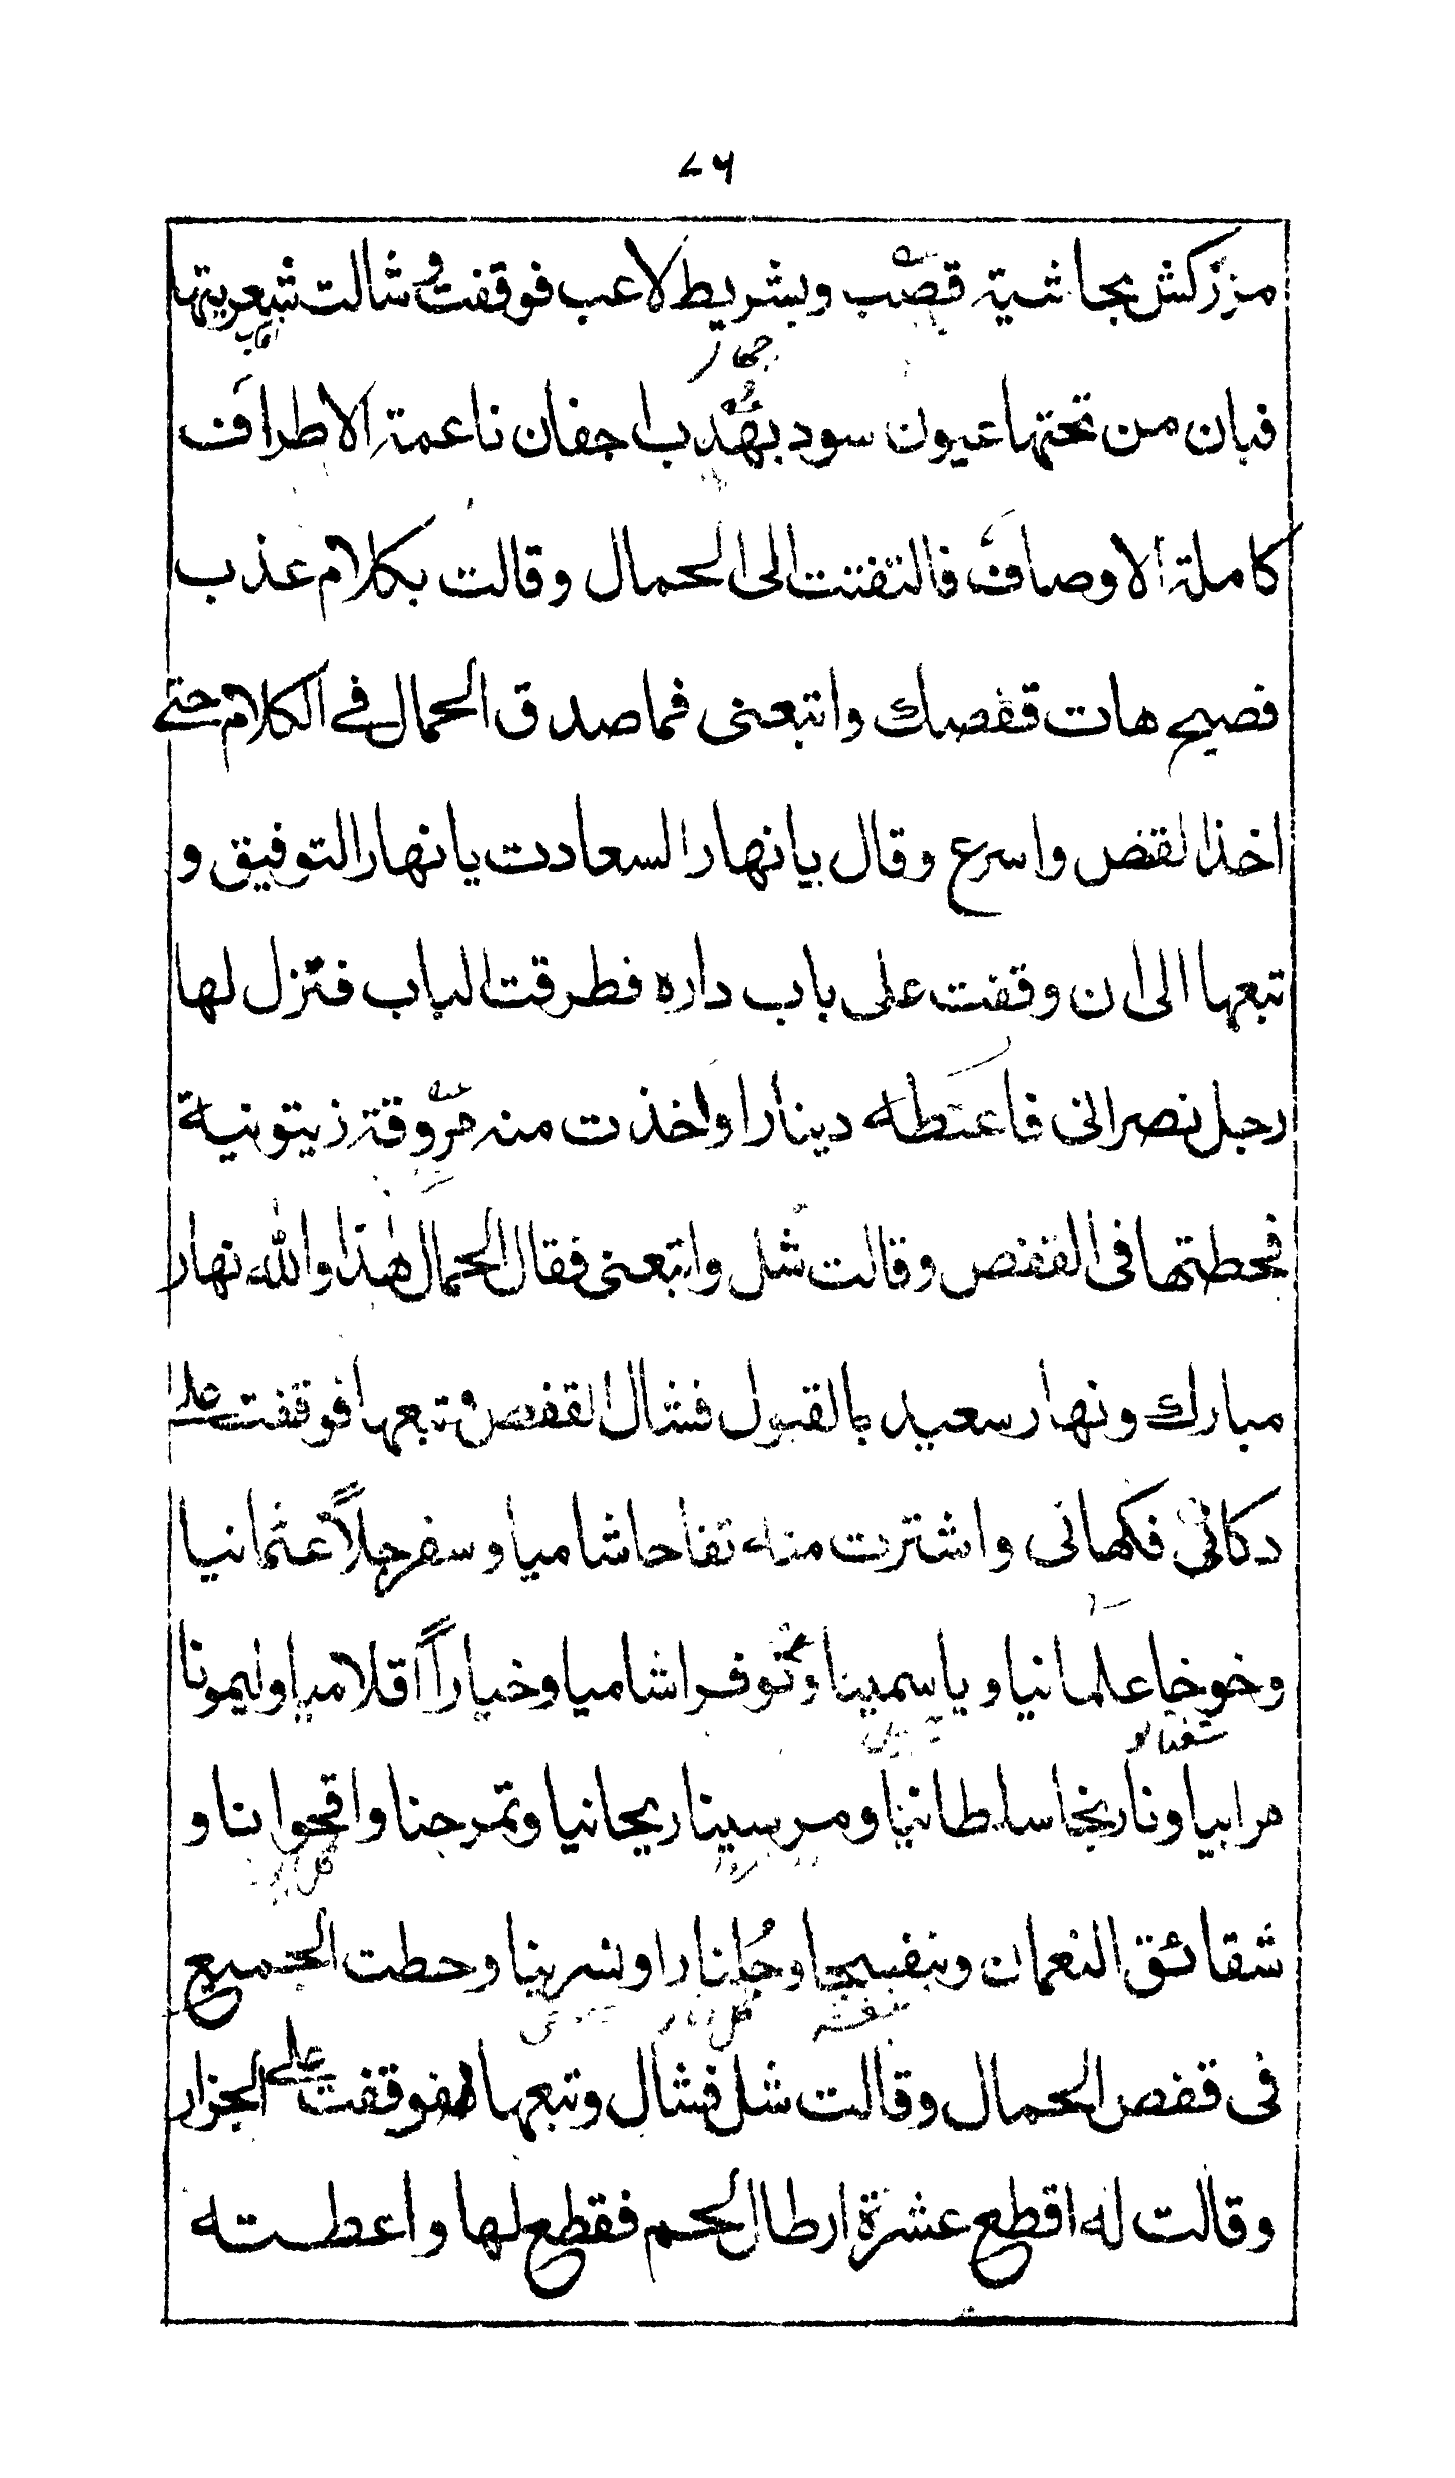 ٧٦
مزركش بحاشية قصب وبشريط لاعب فوقفت وشالت شعريتها
فبان من تحتها عيون سود بهدب اجفان ناعمة الاطراف
كاملة الاوصاف فالتفتت الى الحمال وقالت بكلام عذب
فصيح هات قفصك واتبعنى فما صدق الحمال فے الكلام حتے
اخذ القفص واسرع وقال يا نهار السعادت يا نهار التوفيق و
تبعها الى ان وقفت على باب داره فطرقت الباب فنزل لها
رجل نصرانى فاعتطه دينارا واخذت منه مروقة زيتونية
فحطتها فى القفص وقالت شُل واتبعنى فقال الحمال هٰذا والله نهار
مبارك ونهار سعيد بالقبول فشال القفص وتبعها فوقفت علے
دكانى فكهانى واشترت منه تفاحا شاميا وسفرجلاً عثمانيا
وخوخا علمانيا وياسمينا ونوفرا شاميا وخياراً اقلاميا وليمونا
مرابيا ونارنجا سلطانيا ومرسينا ريحانيا وتمرحنا واقحوانا و
شقائق النعمان وبنفسجا وجُلنارا ونسرينا وحطت الجميع
فى قفص الحمال وقالت شل فشال وتبعها فوقفت علے الجزار
وقالت له اقطع عشرة ارطال لحم فقطع لها واعطته